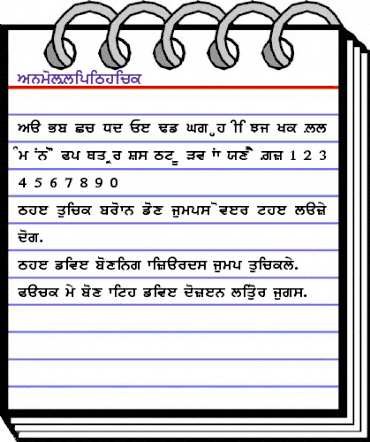 ਅਨਮੋਲਲ਼ਪਿਠਿਹਚਿਕ
ਅੳ ਭਬ ਛਚ ਧਦ ਓੲ ਢਡ ਘਗ ੍ਹਹ ੀਿ ਝਜ ਖਕ ਲ਼ਲ
ੰਮ ਂਨ ੌੋ ਫਪ ਥਤ ੍ਰਰ ਸ਼ਸ ਠਟ ੂੁ ੜਵ ਾਂਾ ਯਣ ੈੇ ਗ਼ਜ਼ 1 2 3
4 5 6 7 8 9 0
ਠਹੲ ਤੁਚਿਕ ਬਰੋਾਨ ਡੋਣ ਜੁਮਪਸ ੋਵੲਰ ਟਹੲ ਲੳਜ਼ੇ
ਦੋਗ.
ਠਹੲ ਡਵਿੲ ਬੋਣਨਿਗ ਾਜ਼ਿੳਰਦਸ ਜੁਮਪ ਤੁਚਿਕਲੇ.
ਫੳਚਕ ਮੇ ਬੋਣ ਾਟਿਹ ਡਵਿੲ ਦੋਜ਼ੲਨ ਲਤਿੁੋਰ ਜੁਗਸ.